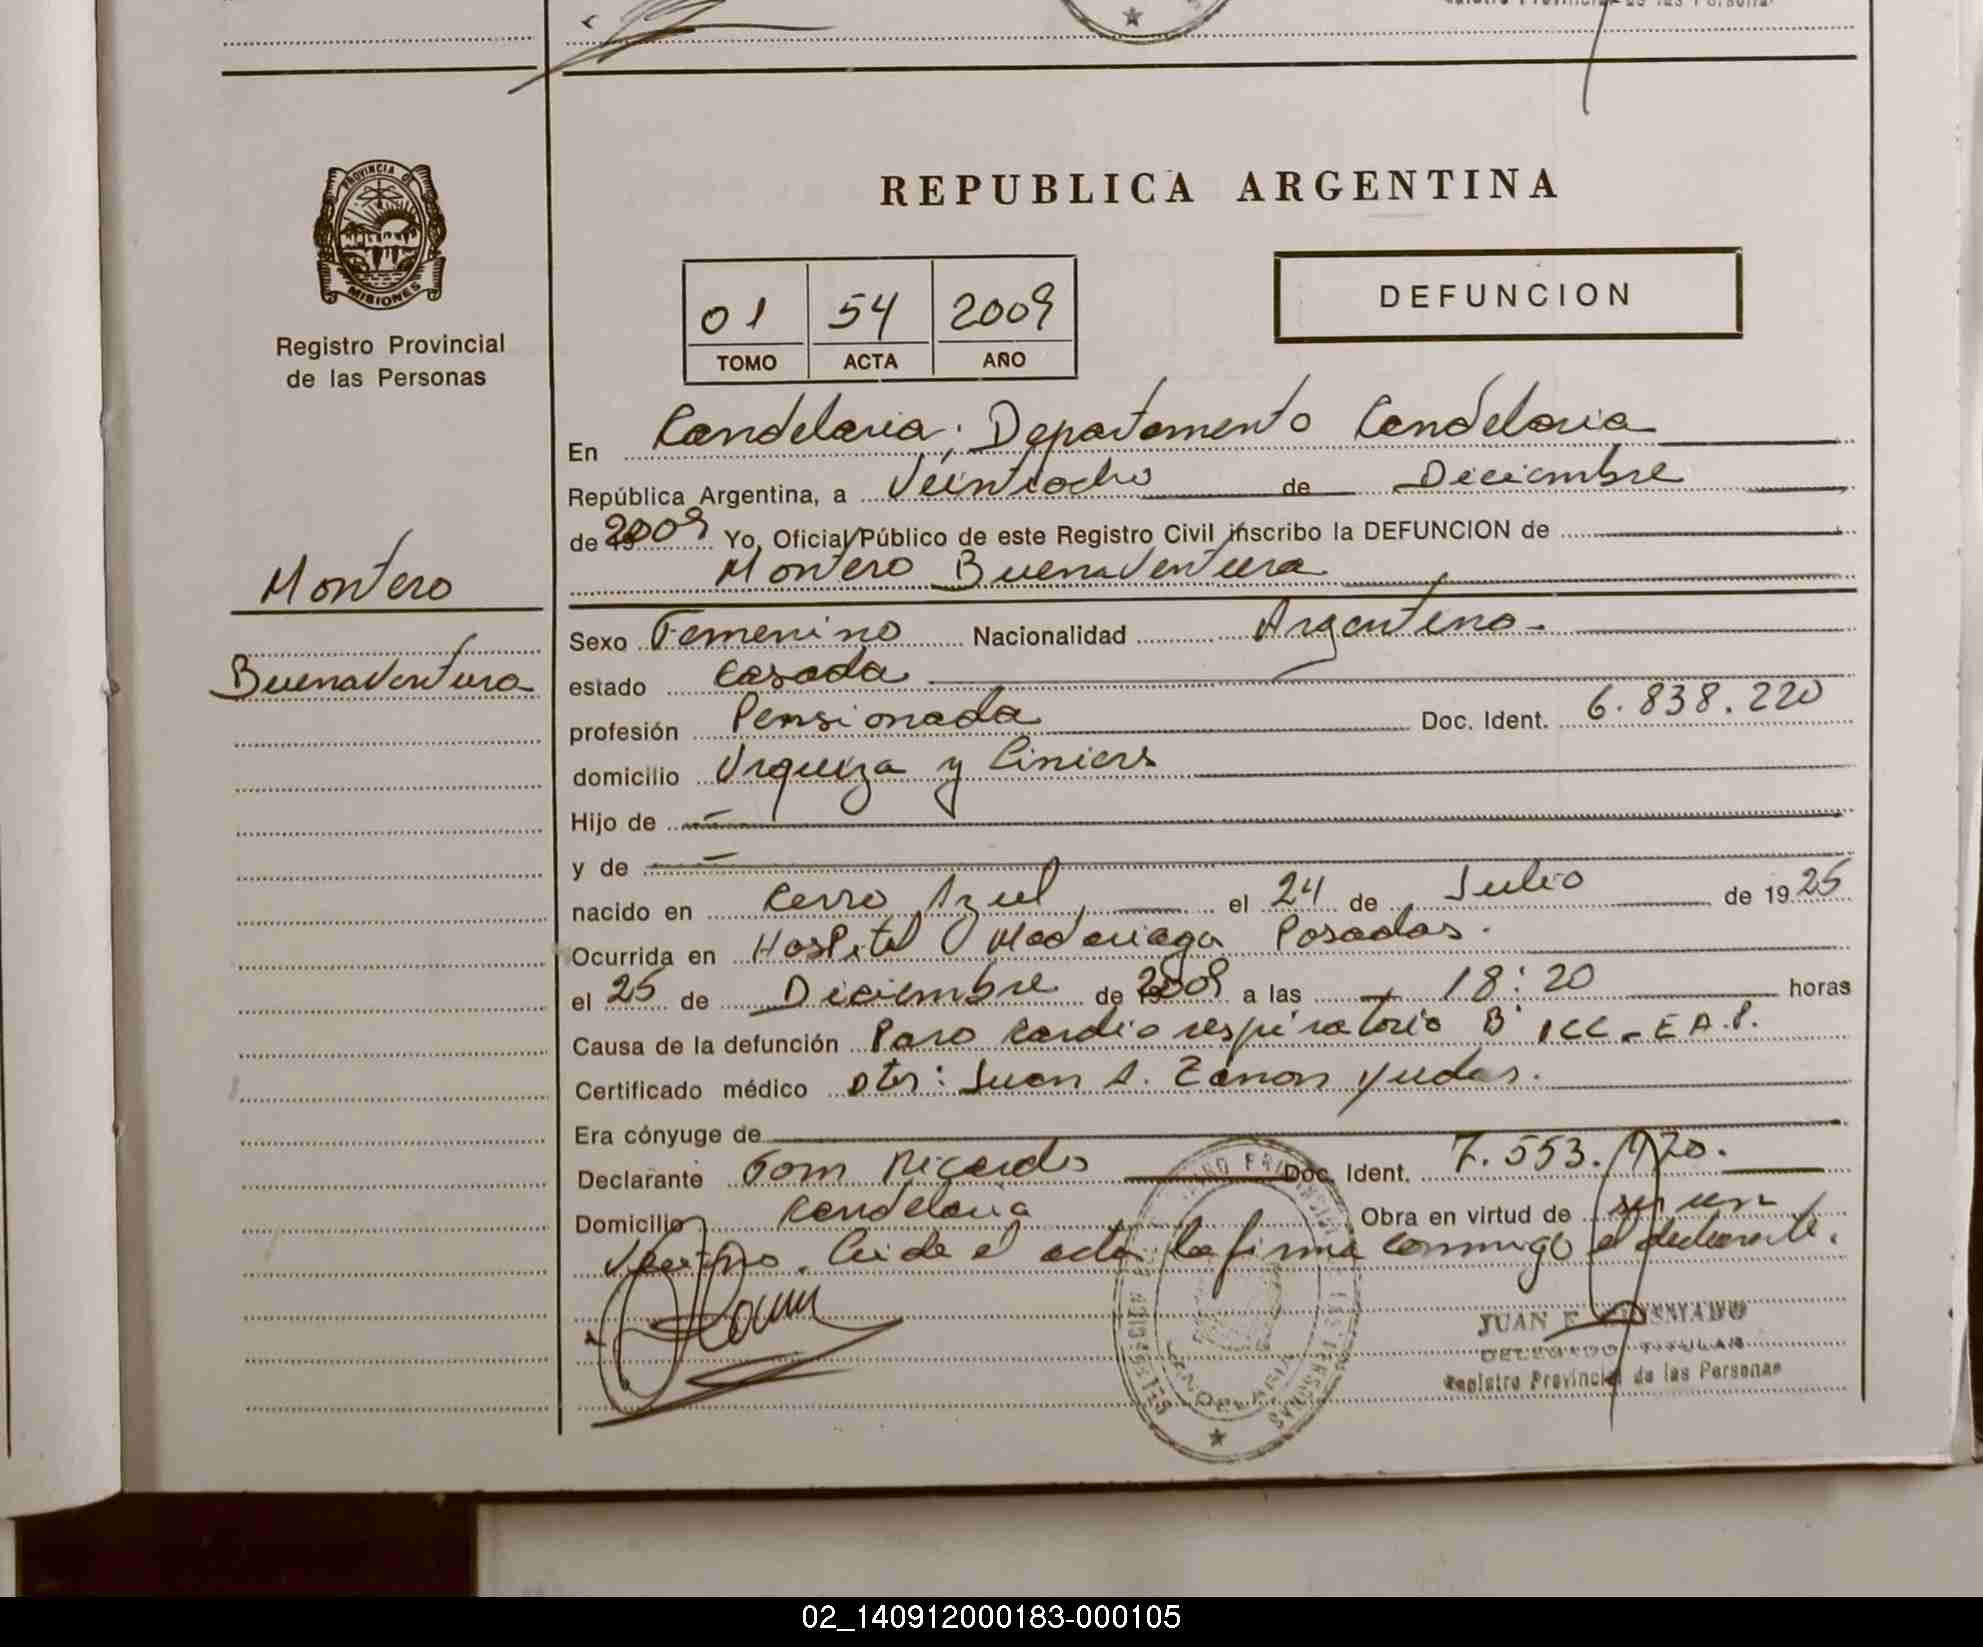 PROVINCIA DE
MISIONES
Registro Provincial
de las Personas
Montero
Buenaventura
REPUBLICA ARGENTINA
01 54 2009
TOMO ACTA AÑO
DEFUNCION
En Candelaria, Departamento Candelaria
República Argentina, a Veintiocho de Diciembre
de 2009 Yo, Oficial Público de este Registro Civil inscribo la DEFUNCION de
Montero Buenaventura
Sexo Femenino Nacionalidad Argentina
estado Casada
profesión Pensionada Doc. Ident. 6.838.220
domicilio Urquiza y Liniers
Hijo de
y de
nacido en Cerro Azul el 24 de Julio de 1925
Ocurrida en Hospital Madariaga Posadas.
el 25 de Diciembre de 2009 a las 18:20 horas
Causa de la defunción Paro cardio respiratorio B ICC - E A.P.
Certificado médico Dtor: Juan A. Zanon Yudas.
Era cónyuge de
Declarante Ricardo Doc. Ident. 7.553.
Domicilio Candelaria Obra en virtud de ser un
Vecino. Leida el acta la firma conmigo el declarante.
JUAN
DELEGADO TITULAR
Registro Provincial de las Personas
CANDELARIA
02_140912000183-000105